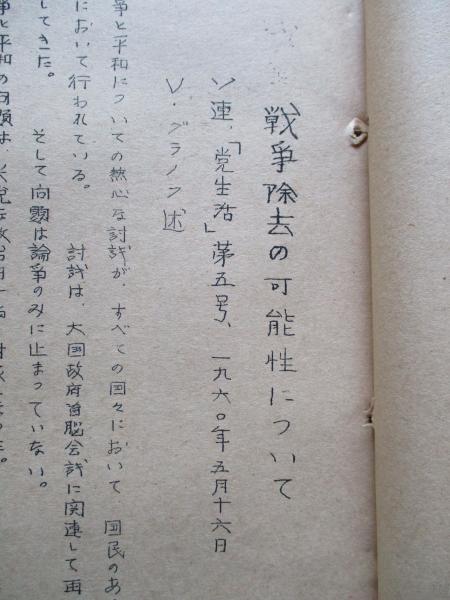 戦争除去の可能性について
ソ連、「党生活」第五号、一九六〇年五月十六日
V・グラノフ述
争と平和についての熱心な討議が、すべての国々において 国民のあ
において行われている。 討議は、大国政府首脳会議に関連して再
してきた。 そして問題は論争のみに止まっていない。
争と平和の問題は、